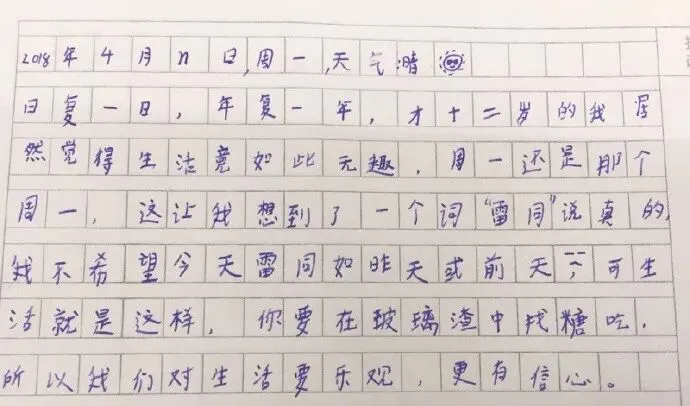 2018年4月n日,周一,天气晴
日复一日，年复一年，才十二岁的我居
然觉得生活竟如此无趣，周一还是那个
周一，这让我想到了一个词“雷同”说真的,
我不希望今天雷同如昨天或前天,可生
活就是这样，你要在玻璃渣中找糖吃.
所以我们对生活要乐观，更有信心。